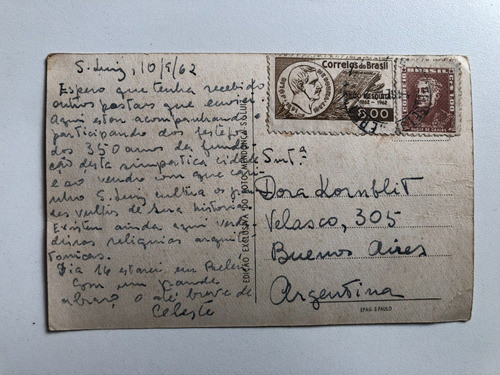 S. Luiz, 10/9/62
Espero que tenha recebido
outros postais que enviei.
Aqui estou acompanhando e
participando dos festejos
dos 350 anos da funda-
ção desta simpatica cidade
e ao vendo com que cari-
nho S. Luiz cultiva os
de sua historia.
Existem ainda aqui verda-
deiras reliquias arqui-
tonicas.
Dia 16 estarei em Belem
Com um grande
abraço, o até breve de
Celeste
EDIÇÃO EXCLUSIVA DO FOTO MENDONÇA S. LUIZ
Correios do Brasil
1862 - 1962
8,00
BRASIL
DUQUE DE CAXIAS
Snt.ª
Dora Kornblit
Velasco, 305
Buenos Aires
Argentina
EPAG - S. PAULO